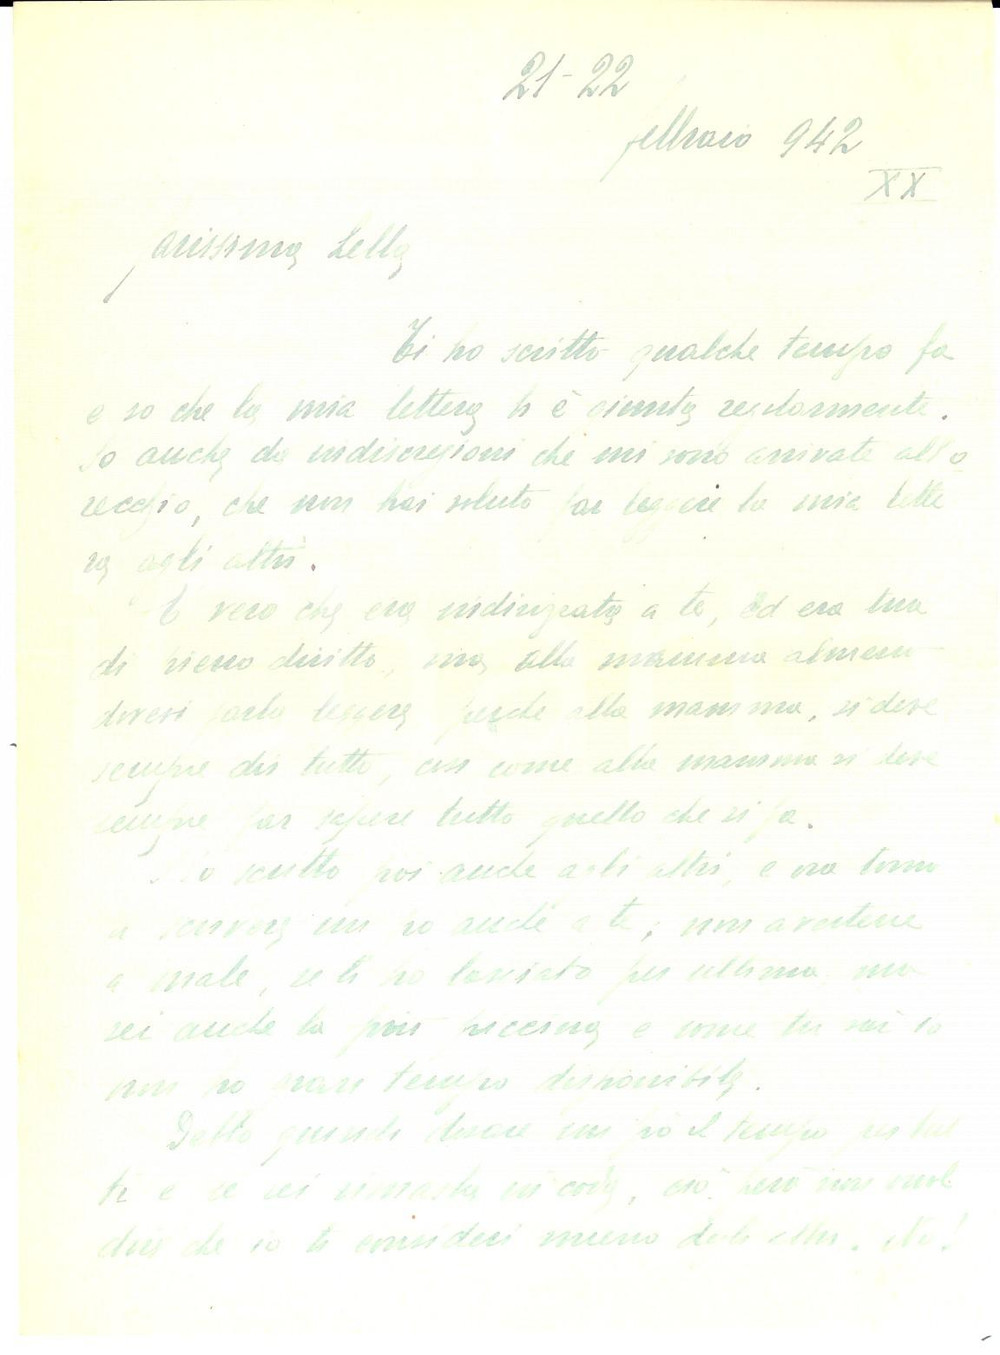 21-22
febbraio 942
XX
Carissima Lella
Ti ho scritto qualche tempo fa
e so che la mia lettera ti è giunta regolarmente.
So anche da indiscrezioni che mi sono arrivate all'o
recchio, che non hai voluto far leggere la mia lette
ra agli altri.
È vero che era indirizzata a te, ed era tua
di pieno diritto, ma alla mamma almeno
dovevi farla leggere perché alla mamma, si deve
sempre dir tutto, così come alla mamma si deve
sempre far sapere tutto quello che si fa.
Ho scritto poi anche agli altri, e ora torno
a scrivere un po anche a te; non avertene
a male, se ti ho lasciato per ultima ma
sei anche la più piccina e come tu sai io
non ho gran tempo disponibile.
Debbo quindi dividere un po il tempo per tut
ti e se sei rimasta in coda, ciò però non vuol
dire che io ti consideri meno degli altri. No!